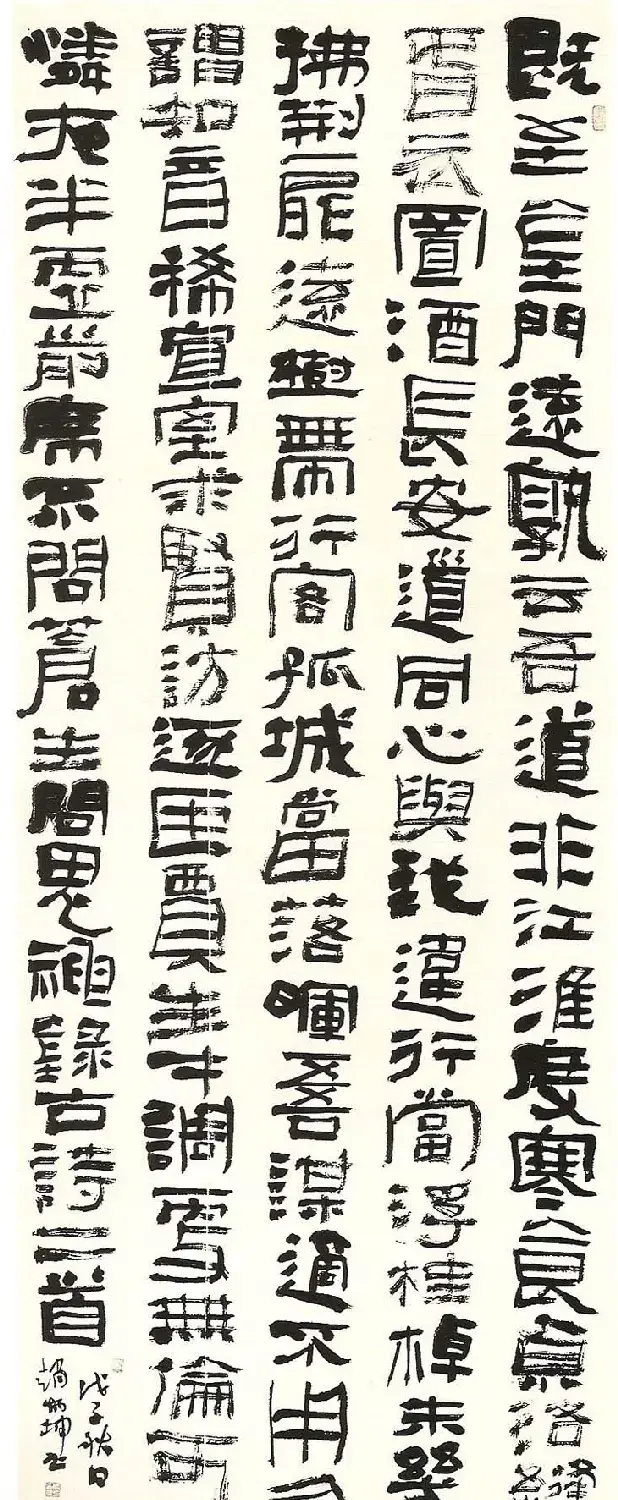 既至金門遠孰云吾道非江淮度寒食京洛縫
春衣置酒長安道同心與我違行當浮桂棹未幾
拂荆扉遠樹帶行客孤城當落暉吾謀適不用勿
謂知音稀宣室求賢訪逐臣賈生才調更無倫可
憐夜半虛前席不問蒼生問鬼神錄古詩二首
戊子秋日